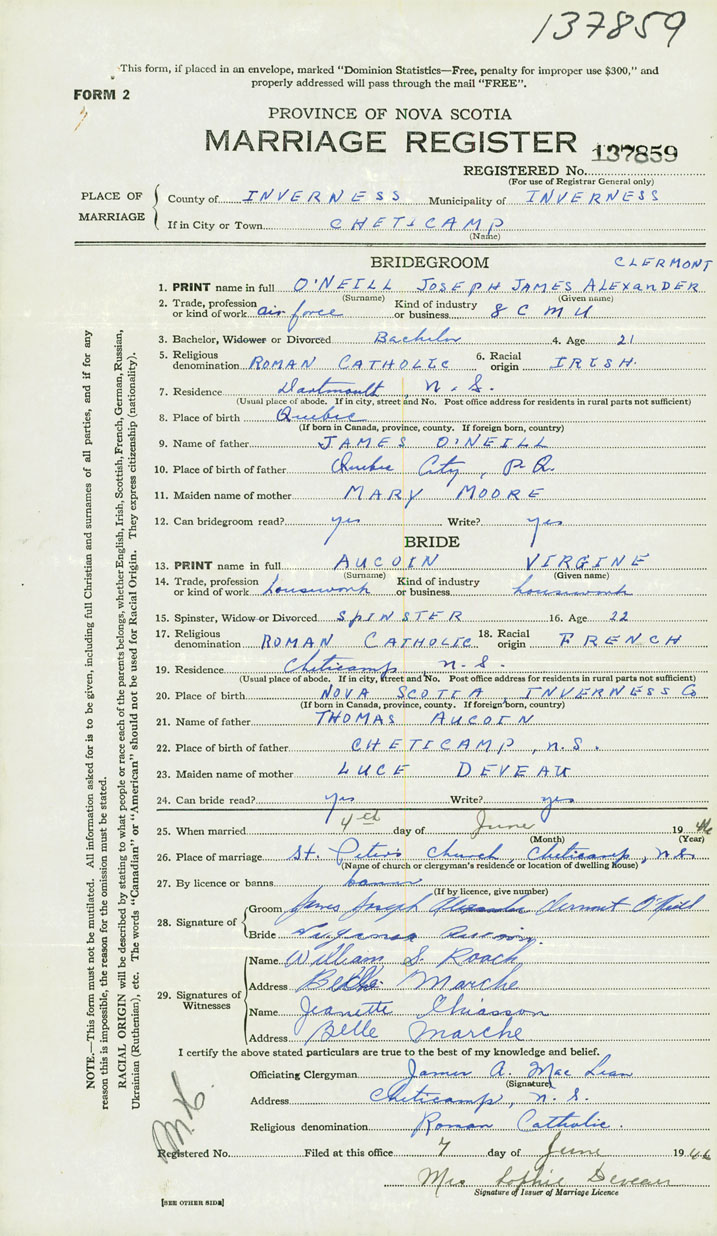 137859
This form, if placed in an envelope, marked "Dominion Statistics—Free, penalty for improper use $300," and
properly addressed will pass through the mail "FREE".
FORM 2
PROVINCE OF NOVA SCOTIA
MARRIAGE REGISTER 137859
REGISTERED No.
(For use of Registrar General only)
PLACE OF MARRIAGE
County of INVERNESS Municipality of INVERNESS
If in City or Town CHETICAMP
(Name)
BRIDEGROOM CLERMONT
1. PRINT name in full O'NEILL JOSEPH JAMES ALEXANDER
(Surname) (Given name)
2. Trade, profession or kind of work air force Kind of industry or business 8 C M U
3. Bachelor, Widower or Divorced Bachelor 4. Age 21
5. Religious denomination ROMAN CATHOLIC 6. Racial origin IRISH.
7. Residence Dartmouth, N.S.
(Usual place of abode. If in city, street and No. Post office address for residents in rural parts not sufficient)
8. Place of birth Quebec
(If born in Canada, province, county. If foreign born, country)
9. Name of father JAMES O'NEILL
10. Place of birth of father Quebec City, P.Q.
11. Maiden name of mother MARY MOORE
12. Can bridegroom read? yes Write? yes
BRIDE
13. PRINT name in full AUCOIN VIRGINE
(Surname) (Given name)
14. Trade, profession or kind of work housework Kind of industry or business housework
15. Spinster, Widow or Divorced SPINSTER 16. Age 22
17. Religious denomination ROMAN CATHOLIC 18. Racial origin FRENCH
19. Residence Cheticamp, N.S.
(Usual place of abode. If in city, street and No. Post office address for residents in rural parts not sufficient)
20. Place of birth NOVA SCOTIA, INVERNESS Co
(If born in Canada, province, county. If foreign born, country)
21. Name of father THOMAS AUCOIN
22. Place of birth of father CHETICAMP, N.S.
23. Maiden name of mother LUCE DEVEAU
24. Can bride read? yes Write? yes
25. When married 4th day of June 1946
(Month) (Year)
26. Place of marriage St. Peter's Church, Cheticamp, N.S.
(Name of church or clergyman's residence or location of dwelling house)
27. By licence or banns banns
(If by licence, give number)
28. Signature of
Groom James Joseph Alexander Clermont O'Neill
Bride Aucoin
29. Signatures of Witnesses
Name William S. Roach
Address Belle Marche
Name Jeanette Chiasson
Address Belle Marche
I certify the above stated particulars are true to the best of my knowledge and belief.
Officiating Clergyman James A. MacLean
(Signature)
Address Cheticamp, N.S.
Religious denomination Roman Catholic.
Registered No. Filed at this office 7 day of June 1946
Mrs Sophie Deveau
Signature of Issuer of Marriage Licence
[SEE OTHER SIDE]
NOTE.—This form must not be mutilated. All information asked for is to be given, including full Christian and surnames of all parties, and if for any
reason this is impossible, the reason for the omission must be stated.
RACIAL ORIGIN will be described by stating to what people or race each of the parents belongs, whether English, Irish, Scottish, French, German, Russian,
Ukrainian (Ruthenian), etc. The words "Canadian" or "American" should not be used for Racial Origin. They express citizenship (nationality).